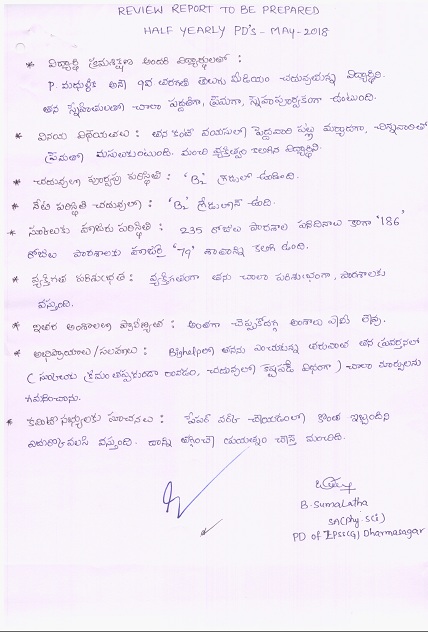 REVIEW REPORT TO BE PREPARED
HALF YEARLY PD's - MAY-2018
* విద్యార్థి క్రమశిక్షణ అందరి విద్యార్థులతో :
P. మధుప్రియ అనే 9వ తరగతి తెలుగు మీడియం చదువుతున్న విద్యార్థిని.
తన స్నేహితులతో చాలా పద్ధతిగా, ప్రేమగా, స్నేహపూర్వకంగా ఉంటుంది.
* వినయ విధేయతలు : తన కంటే వయసులో పెద్దవారి పట్ల మర్యాదగా, చిన్నవారితో
ప్రేమతో మసులుకుంటుంది. మంచి వ్యక్తిత్వం కలిగిన విద్యార్థిని.
* చదువులో పూర్వపు పరిస్థితి : 'B2' గ్రేడులో ఉండింది.
* నేటి పరిస్థితి చదువులో : 'B2' గ్రేడులోనే ఉంది.
* స్కూలుకు హాజరు పరిస్థితి : 235 రోజులు పాఠశాల పనిదినాలు కాగా '186'
రోజులు పాఠశాలకు హాజరై '79' శాతాన్ని కలిగి ఉంది.
* వ్యక్తిగత పరిశుభ్రత : వ్యక్తిగతంగా తను చాలా పరిశుభ్రంగా, పాఠశాలకు
వస్తుంది.
* ఇతర అంశాలలో ప్రావీణ్యత : అంతగా చెప్పుకోదగ్గ అంశాలు ఏమీ లేవు.
* అభిప్రాయాలు / సలహాలు : Bighelpలో తనను ఎంచుకున్న తరువాత తన ప్రవర్తనలో
( స్కూలుకు క్రమం తప్పకుండా రావడం, చదువులో కష్టపడే విధంగా ) చాలా మార్పులను
గమనించాను.
* కమిటీ సభ్యులకు సూచనలు : పేపర్ వర్క్ చేయడంలో కొంత ఇబ్బందిని
ఎదుర్కోవలసి వస్తుంది. దాన్ని తగ్గించే ప్రయత్నం చేస్తే మంచిది.
B. Sumalatha
SA(Phy. Sci)
PD of ZPSS(G) Dharmasagar